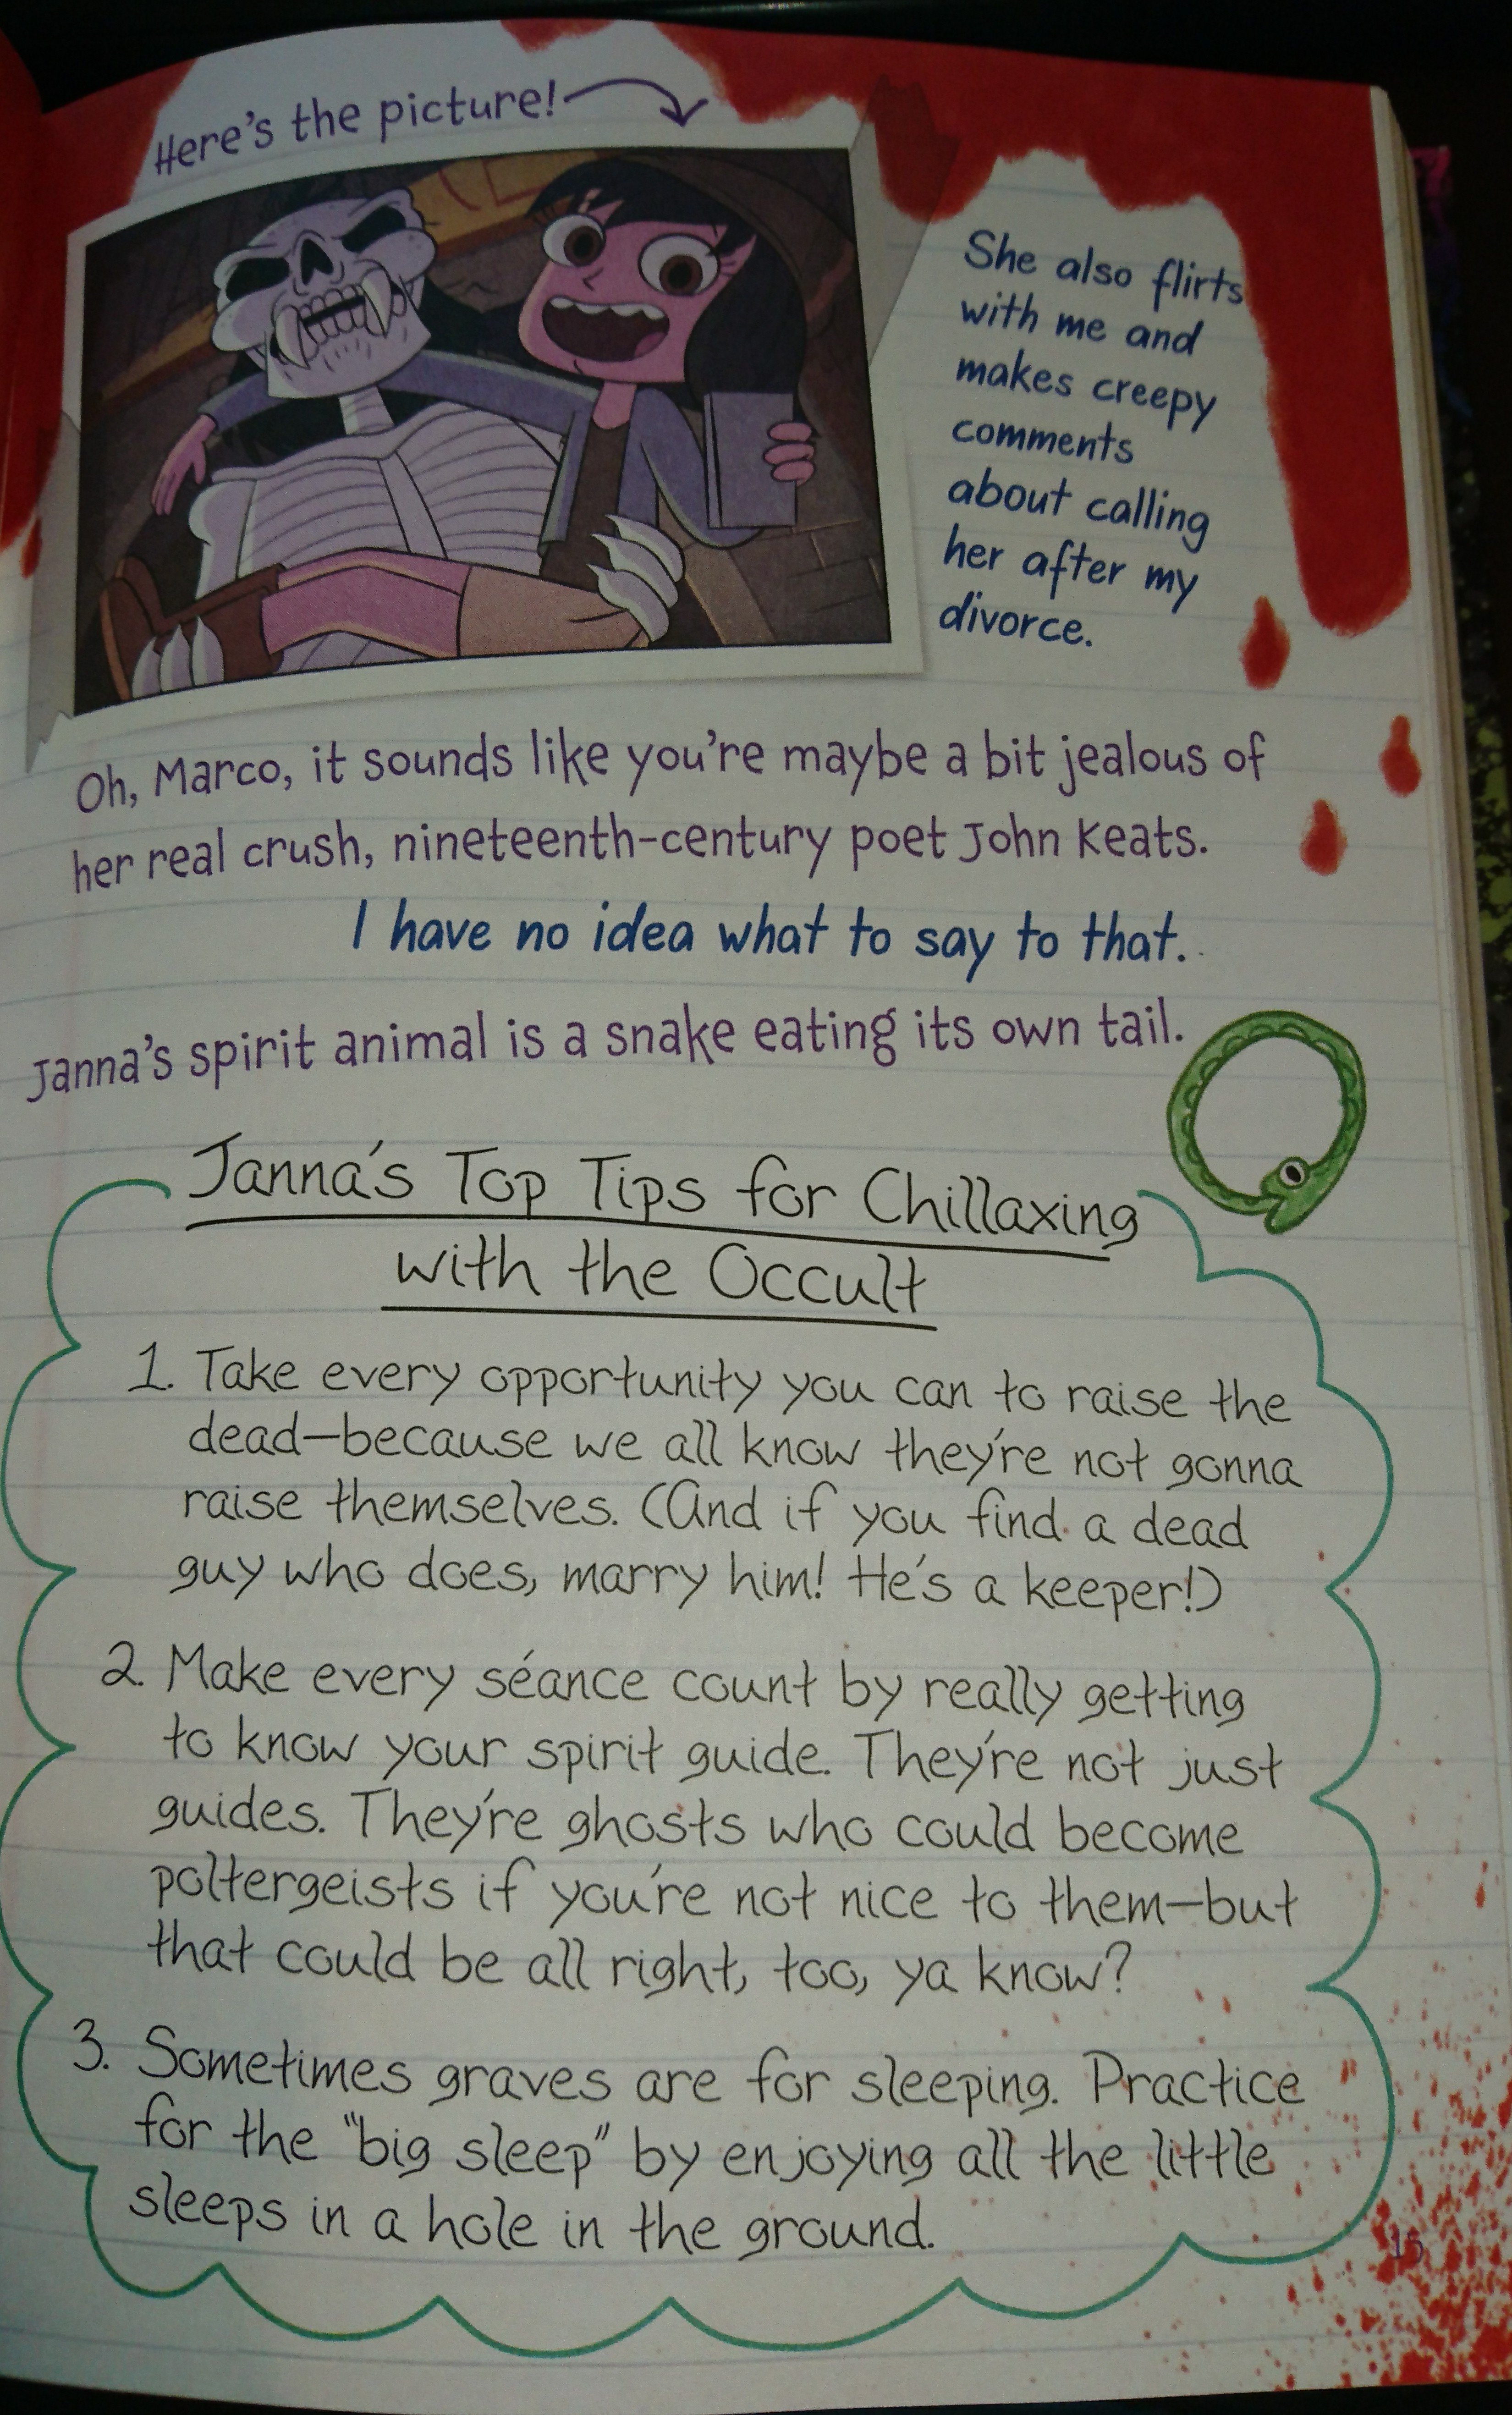 Here's the picture!
She also flirts
with me and
makes creepy
comments
about calling
her after my
divorce.
Oh, Marco, it sounds like you're maybe a bit jealous of
her real crush, nineteenth-century poet John Keats.
I have no idea what to say to that.
Janna's spirit animal is a snake eating its own tail.
Janna's Top Tips for Chillaxing
with the Occult
1. Take every opportunity you can to raise the
dead—because we all know they're not gonna
raise themselves. (And if you find a dead
guy who does, marry him! He's a keeper!)
2. Make every séance count by really getting
to know your spirit guide. They're not just
guides. They're ghosts who could become
poltergeists if you're not nice to them—but
that could be all right, too, ya know?
3. Sometimes graves are for sleeping. Practice
for the "big sleep" by enjoying all the little
sleeps in a hole in the ground.
15